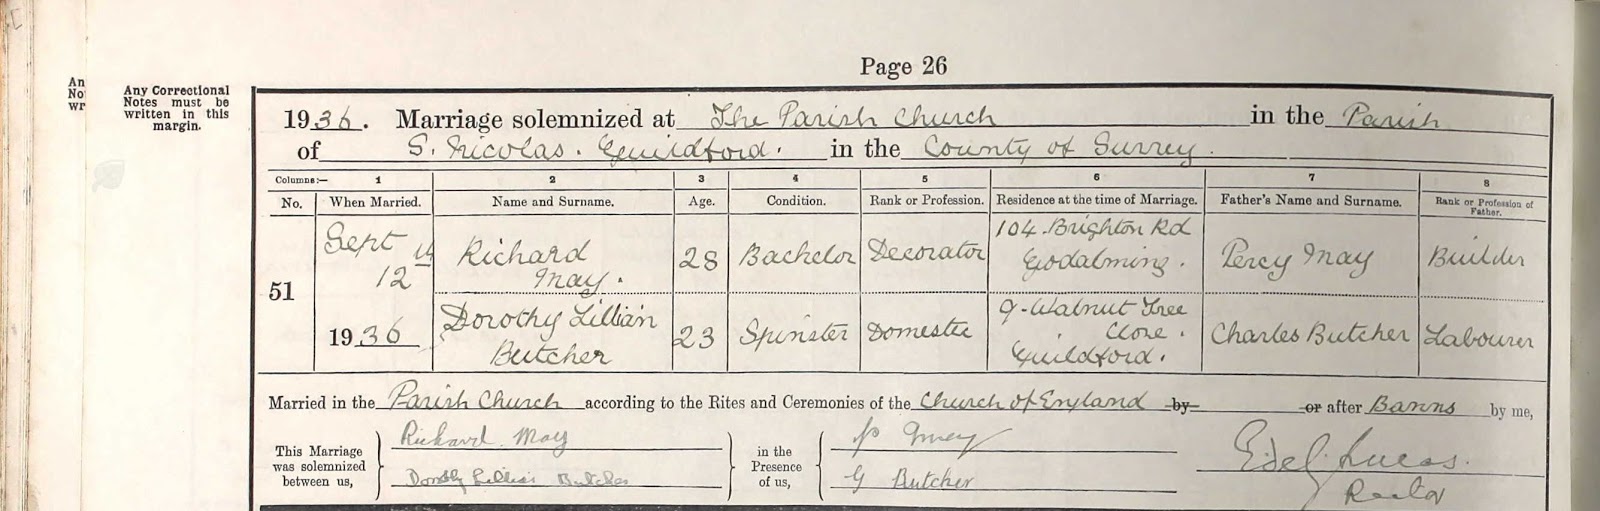 Page 26
An
No
wr
Any Correctional
Notes must be
written in this
margin.
1936. Marriage solemnized at The Parish Church in the Parish
of S. Nicolas. Guildford. in the County of Surrey.
Columns:— 1 2 3 4 5 6 7 8
No. When Married. Name and Surname. Age. Condition. Rank or Profession. Residence at the time of Marriage. Father's Name and Surname. Rank or Profession of Father.
51
Sept 12th
1936
Richard
May.
28 Bachelor Decorator
104. Brighton Rd
Godalming.
Percy May Builder
Dorothy Lillian
Butcher
23 Spinster Domestic
9. Walnut Tree
Close.
Guildford.
Charles Butcher Labourer
Married in the Parish Church according to the Rites and Ceremonies of the Church of England by or after Banns by me,
This Marriage
was solemnized
between us,
Richard May
Dorothy Lillian Butcher
in the
Presence
of us,
G Butcher
Lucas.
Rector